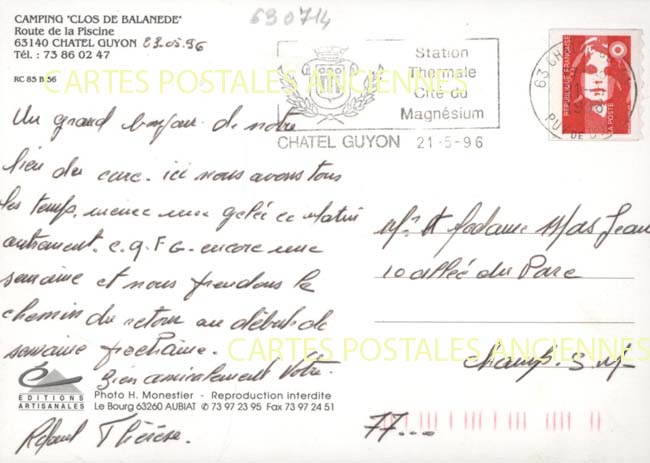 CAMPING "CLOS DE BALANEDE"
Route de la Piscine
63140 CHATEL GUYON 23.05.96
Tél. : 73 86 02 47
RC 85 B 56
690714
Station
Thermale
Cité du
Magnésium
CHATEL GUYON 21-5-96
63 CH
PUY DE D
REPUBLIQUE FRANÇAISE
LA POSTE
CARTES POSTALES ANCIENNES
Un grand bonjour de notre
lieu de cure. ici nous avons tous
les temps, meme une gelée ce matin
autrement. C.Q.F.G. encore une
semaine et nous prendons le
chemin du retour au début de
semaine prochaine.
Bien amicalement Votre
Thérèse.
Mr et Madame Mas Jean
10 allée du Parc
Champ. S. M
77...
CARTES POSTALES ANCIENNES
EDITIONS
ARTISANALES
Photo H. Monestier - Reproduction interdite
Le Bourg 63260 AUBIAT ✆ 73 97 23 95 Fax 73 97 24 51